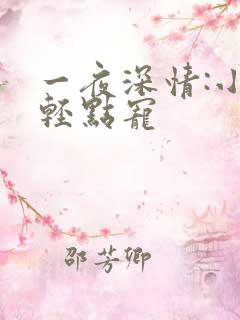 一夜深情:小
輕點寵
邵芳卿